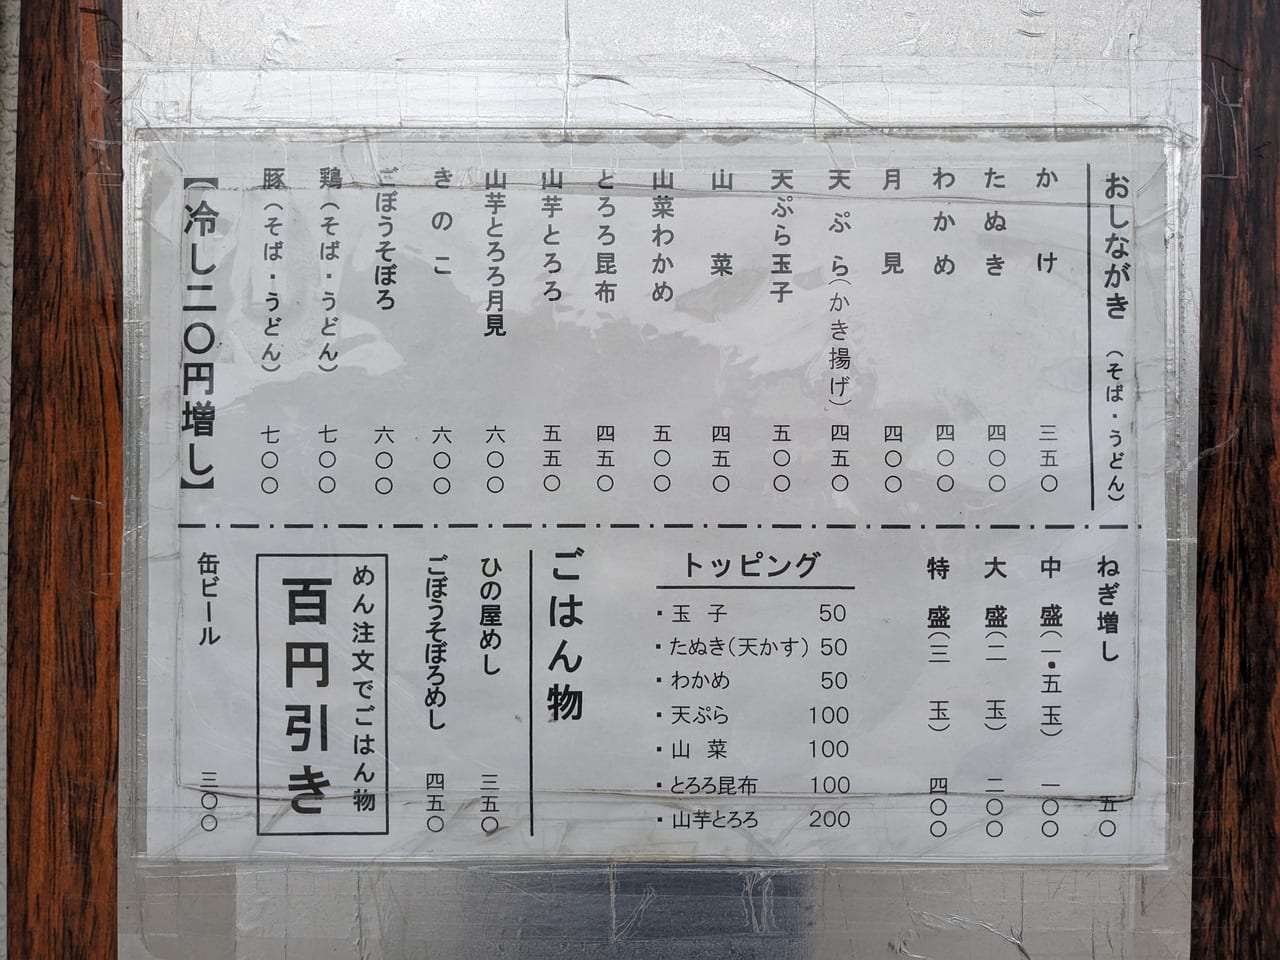 おしながき （そば・うどん）
かけ 三五〇
たぬき 四〇〇
わかめ 四〇〇
月見 四〇〇
天ぷら（かき揚げ） 四五〇
天ぷら玉子 五〇〇
山菜 四五〇
山菜わかめ 五〇〇
とろろ昆布 四五〇
山芋とろろ 五五〇
山芋とろろ月見 六〇〇
きのこ 六〇〇
ごぼうそぼろ 六〇〇
鶏（そば・うどん） 七〇〇
豚（そば・うどん） 七〇〇
【冷し二〇円増し】
ねぎ増し 五〇
中盛（一・五玉） 一〇〇
大盛（二玉） 二〇〇
特盛（三玉） 四〇〇
トッピング
・玉子 50
・たぬき（天かす） 50
・わかめ 50
・天ぷら 100
・山菜 100
・とろろ昆布 100
・山芋とろろ 200
ごはん物
ひの屋めし 三五〇
ごぼうそぼろめし 四五〇
めん注文でごはん物
百円引き
缶ビール 三〇〇